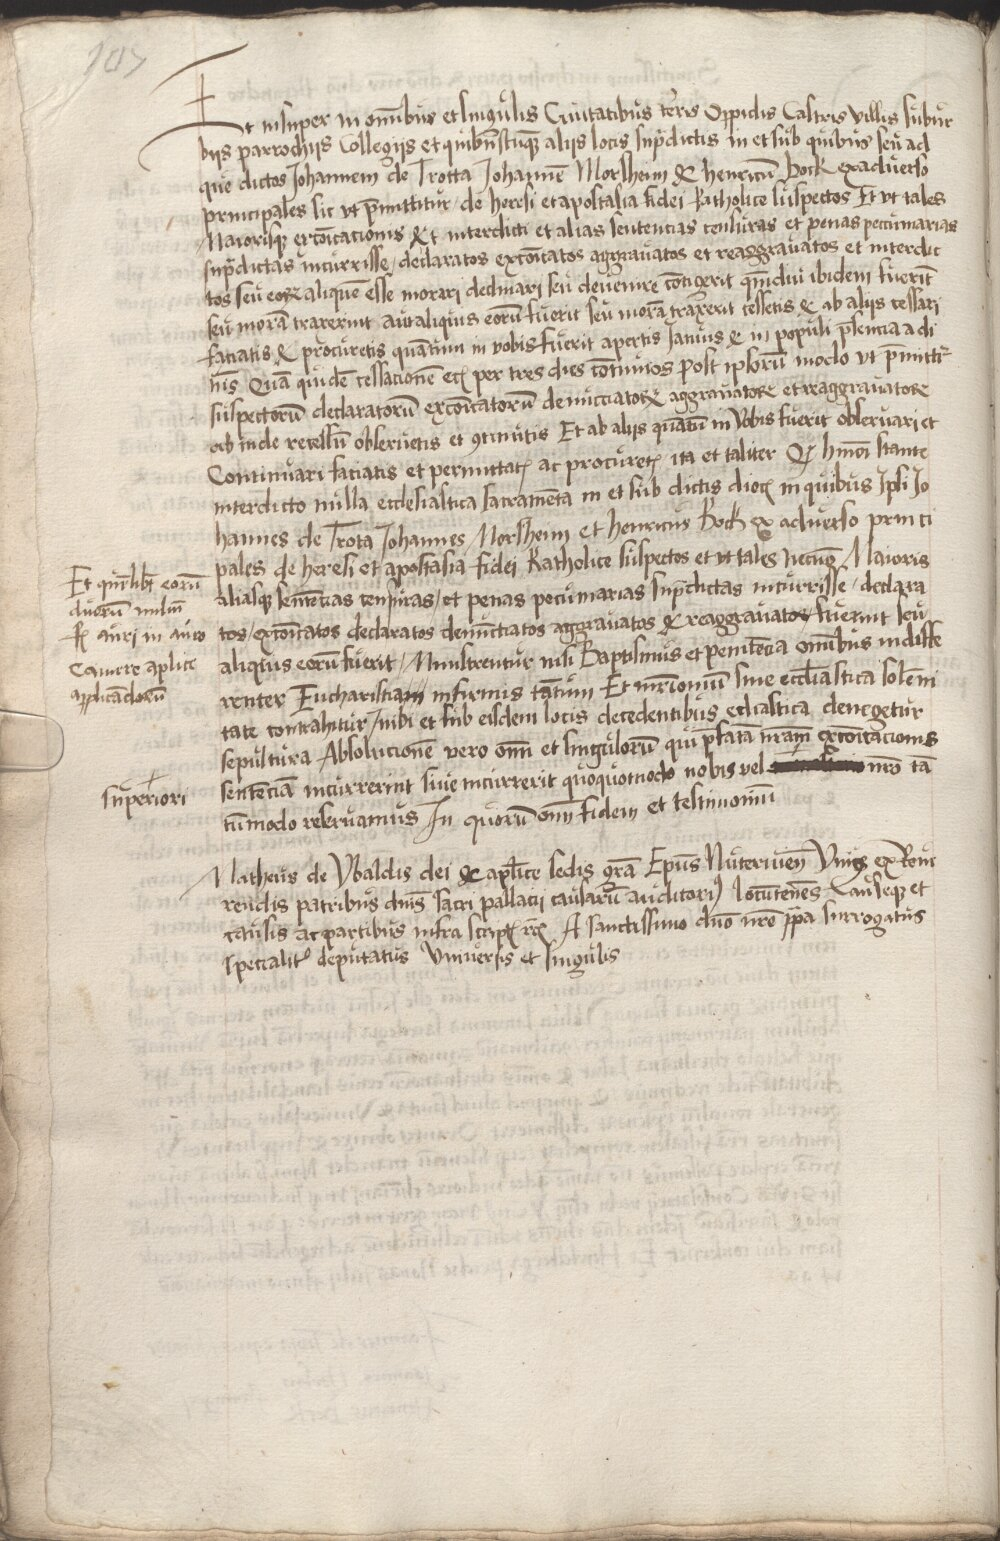 107
Et insuper in om̄ibus et singulis Ciuitatibus terris Oppidis Castris Villis subur
bijs parrochijs Collegijs et quibuscunq̄ alijs locis supradictis in et sub quibus seu ad
que dictos Johannem de Trotta Johannē Morsheim & henricū Bock exaduerso
principales sic vt p̄mittitur / de heresi et apostasia fidei Katholice suspectos Et vt tales
Maiorisq̄ excōicationis & et interdicti et alias sentencias censuras et penas pecuniarias
supradictas incurrisse / declaratos excōicatos aggrauatos et reaggrauatos et interdic
tos seu eoꝝ aliquem esse morari declinari seu deuenire cōtigerit qm̄diu ibidem fuerīt
seu morā traxerint aut aliquis eorū fuerit seu morā traxerit cessetis & ab alijs cessari
faciatis & procuretis quātum in vobis fuerit apertis Januis & in populi p̄sencia a di
nis Quā quidē cessacionē ecꝫ per tres dies cōtinuos post ipsorū modo vt p̄mittr̄
suspectorū declaratorū excōicatorū denūctiatorꝝ aggrauatorꝝ et reaggrauatorꝝ
ab inde recessū obseruetis et 9tinutis Et ab alijs quātū in Vobis fuerit obseruari et
Continuari faciatis et permittatꝫ ac procuretꝫ ita et taliter Qꝫ hm̄oi stante
interdicto nulla ecclesiastica sacramēta in et sub dictis diocꝫ in quibus Ipsi Jo
hannes de Trota Johannes Morsheim et henricus Bock ex aduerso princi
pales de heresi et apostasia fidei Katholice suspectos et vt tales necnō Maioris
aliasq̄ sentēcias censuras / et penas pecuniarias supradictas incurrisse / declara
tos / excōicatos declaratos denūctiatos aggrauatos & reaggrauatos fuerint seu
aliquis eorū fuerit / Ministrentur nisi Baptismus et penitēcia omībus indiffe
renter Eucharistiam infirmis tātum Et mr̄ionium sine eccl̄iastica solēni
tate contrahitur / nibi et sub eisdem locis decedentibus eccl̄iastica denegetur
sepultura Absolucionē vero om̄ et singulorū qui p̄fatā nrām excōicacionis
sentēciā incurrerint siue incurrerit quoquomodo nobis vel nrō tā
tūmodo reseruamus In quorū om̄ fidem et testimoniū
Et qm̄libet eorū
duorū milm̄
fl auri in auro
Camere aplice
applicādorū
superiori
Matheus de Vbaldis dei & aplice sedis grā Epūs Nuteriuen̄ Vnus ex Reue
rendis patribus dnīs sacri pallacij causarū auditorꝫ locutenēs Causeq̄ et
causis ac partibus infra scriptꝫ A sanctissimo dnō nrō ppa surrogatus
specialitꝫ deputatus Vniuersis et singulis